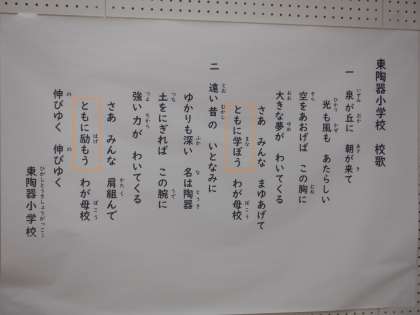 東陶器小学校 校歌
一 泉が丘に 朝が来て
光も風も あたらしい
空をあおげば この胸に
大きな夢が わいてくる
さあ みんな まゆあげて
ともに学ぼう わが母校
二 遠い昔の いとなみに
ゆかりも深い 名は陶器
土をにぎれば この腕に
強い力が わいてくる
さあ みんな 肩組んで
ともに励もう わが母校
伸びゆく 伸びゆく
東陶器小学校